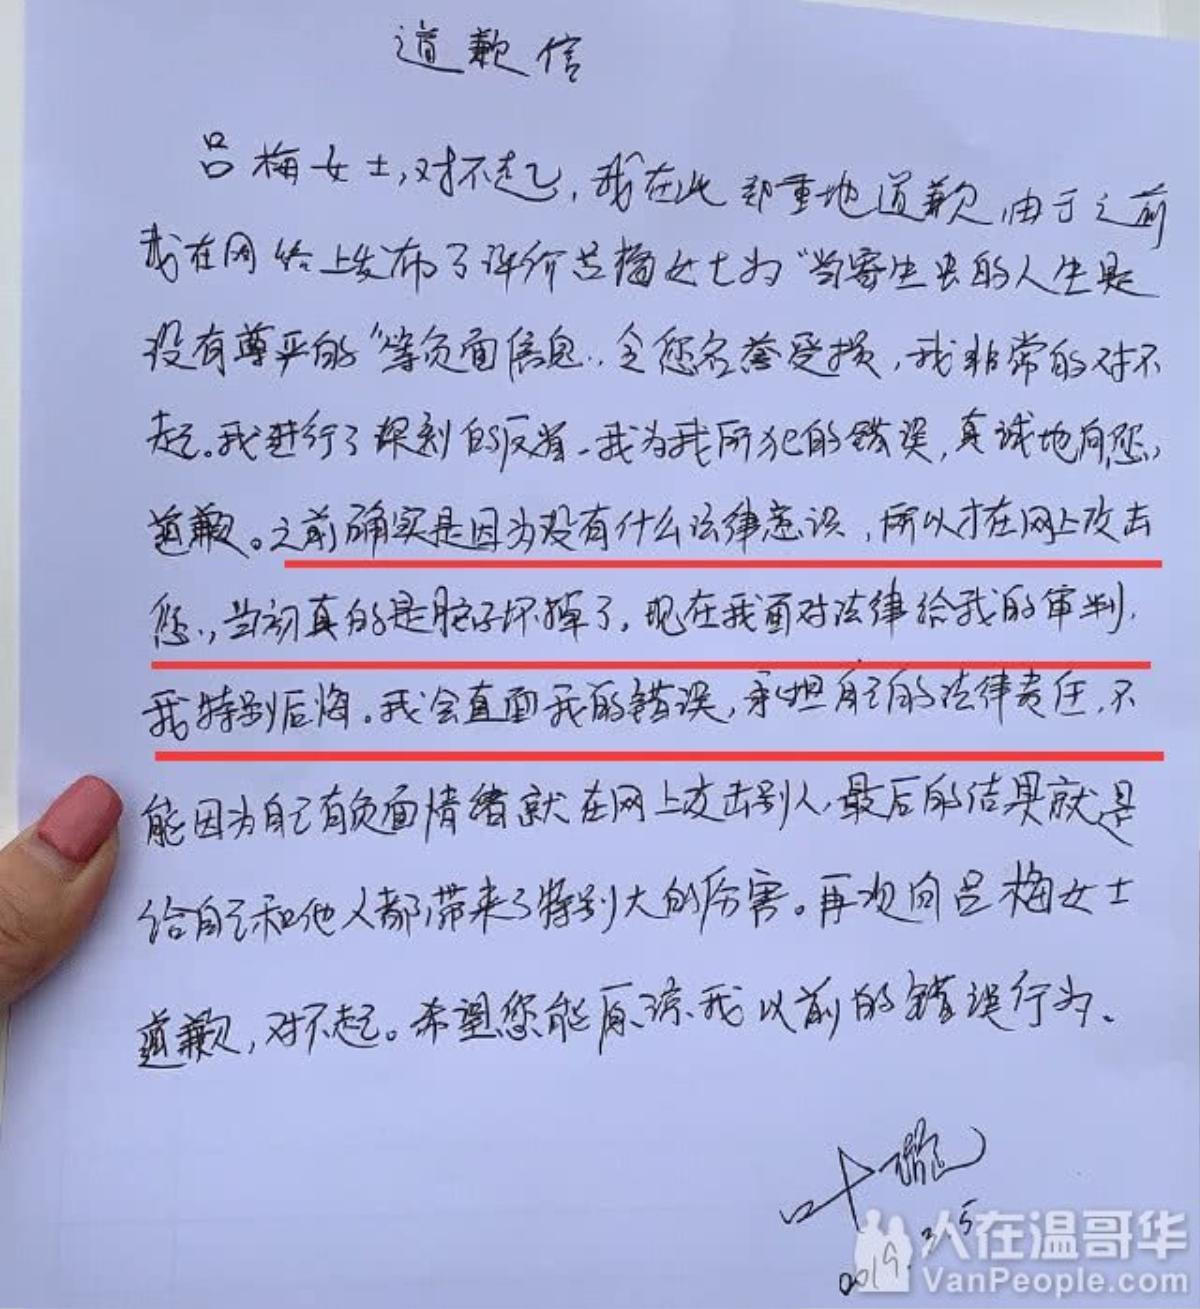 道歉信
吕梅女士,对不起,我在此郑重地道歉,由于之前
我在网络上发布了评价吕梅女士为“当寄生虫的人生是
没有尊严的”等负面信息,令您名誉受损,我非常的对不
起。我进行了深刻的反省,我为我所犯的错误,真诚地向您,
道歉。之前确实是因为没有什么法律意识,所以才在网上攻击
您,当初真的是脑子坏掉了,现在我面对法律给我的审判,
我特别后悔。我会直面我的错误,承担自己的法律责任,不
能因为自己有负面情绪就在网上攻击别人,最后的结果就是
给自己和他人都带来了特别大的伤害。再次向吕梅女士
道歉,对不起。希望您能原谅我以前的错误行为。
叶璇
2019.3.5
人在温哥华
VanPeople.com